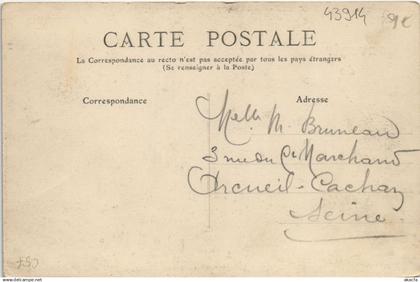 43914
9€
CARTE POSTALE
La Correspondance au recto n'est pas acceptée par tous les pays étrangers
(Se renseigner à la Poste)
Correspondance
Adresse
Melle M. Bruneau
3 rue du Ct Marchand
Arcueil-Cachan
Seine
www.delcampe.net